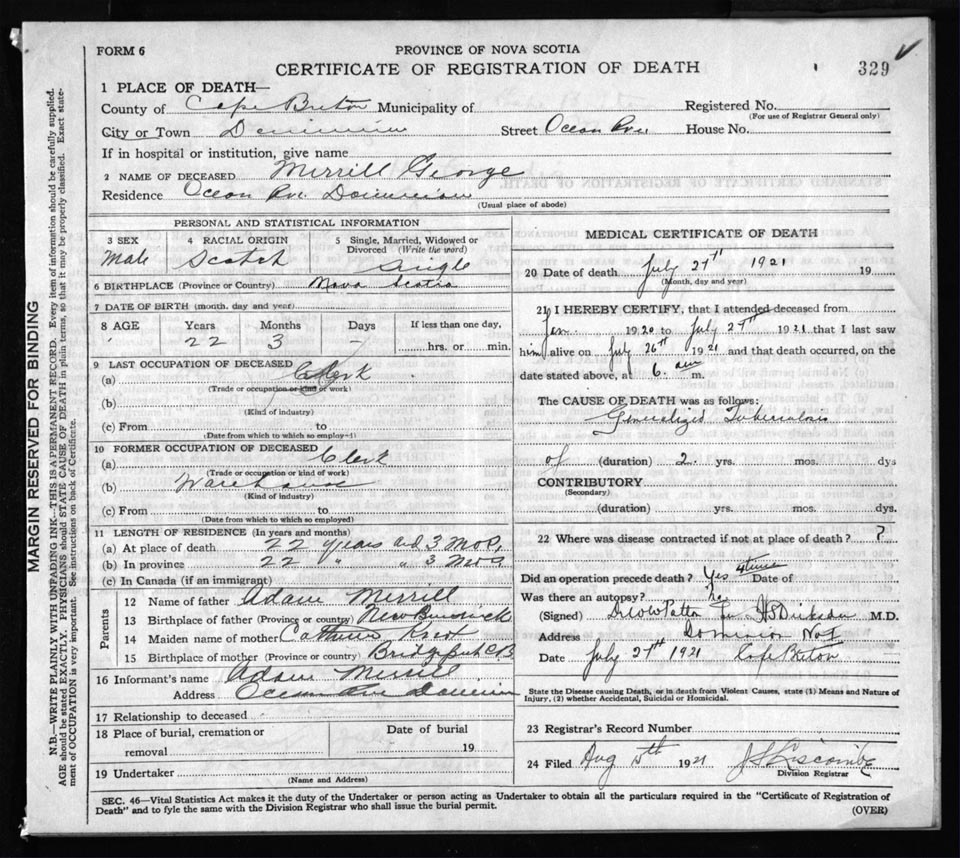 FORM 6
PROVINCE OF NOVA SCOTIA
CERTIFICATE OF REGISTRATION OF DEATH
329
1 PLACE OF DEATH—
County of Cape Breton Municipality of
Registered No.
(For use of Registrar General only)
City or Town Dominion Street Ocean Ave House No.
If in hospital or institution, give name
2 NAME OF DECEASED Merrill George
Residence Ocean Ave. Dominion
(Usual place of abode)
PERSONAL AND STATISTICAL INFORMATION
3 SEX 4 RACIAL ORIGIN 5 Single, Married, Widowed or Divorced (Write the word)
Male Scotch Single
6 BIRTHPLACE (Province or Country) Nova Scotia
7 DATE OF BIRTH (month, day and year)
8 AGE Years Months Days If less than one day,
22 3 – hrs. or min.
9 LAST OCCUPATION OF DECEASED
(a) Clerk
(Trade or occupation or kind of work)
(b)
(Kind of industry)
(c) From to
(Date from which to which so employed)
10 FORMER OCCUPATION OF DECEASED
(a) Clerk
(Trade or occupation or kind of work)
(b) Warehouse
(Kind of industry)
(c) From to
(Date from which to which so employed)
11 LENGTH OF RESIDENCE (In years and months)
(a) At place of death 22 years 3 Mos,
(b) In province 22 " " 3 Mos
(c) In Canada (if an immigrant)
Parents
12 Name of father Adam Merrill
13 Birthplace of father (Province or country) New Brunswick
14 Maiden name of mother
15 Birthplace of mother (Province or country) Bridgeport CB
16 Informant's name Adam Merrill
Address Ocean Ave Dominion
17 Relationship to deceased
18 Place of burial, cremation or removal
Date of burial
19
19 Undertaker
(Name and Address)
MEDICAL CERTIFICATE OF DEATH
20 Date of death July 27th 1921 19
(Month, day and year)
21 I HEREBY CERTIFY, that I attended deceased from
Jan. 1920 to July 27th 1921 that I last saw
him alive on July 26th 1921 and that death occurred, on the
date stated above, at 6. am m.
The CAUSE OF DEATH was as follows:
Generalized Tuberculosis
of (duration) 2. yrs. mos. dys
CONTRIBUTORY
(Secondary)
(duration) yrs. mos. dys.
22 Where was disease contracted if not at place of death? ?
Did an operation precede death? Yes 4 times Date of
Was there an autopsy? No
(Signed) M.D.
Address Dominion No 1
Date July 27th 1921 Cape Breton
State the Disease causing Death, or in death from Violent Causes, state (1) Means and Nature of Injury, (2) whether Accidental, Suicidal or Homicidal.
23 Registrar's Record Number
24 Filed Aug 5th 1921
Division Registrar
SEC. 46—Vital Statistics Act makes it the duty of the Undertaker or person acting as Undertaker to obtain all the particulars required in the "Certificate of Registration of
Death" and to fyle the same with the Division Registrar who shall issue the burial permit.
(OVER)
MARGIN RESERVED FOR BINDING
N.B.—WRITE PLAINLY WITH UNFADING INK—THIS IS A PERMANENT RECORD. Every item of information should be carefully supplied.
AGE should be stated EXACTLY. PHYSICIANS should STATE CAUSE OF DEATH in plain terms, so that it may be properly classified. Exact state-
ment of OCCUPATION is very important. See instructions on back of Certificate.